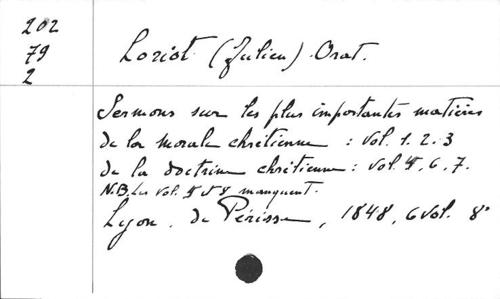 202
79
2
Loriot (Julien) Orat.
Sermons sur les plus importantes matières
de la morale chrétienne : vol. 1. 2. 3
de la doctrine chrétienne : vol. 4, 6, 7.
N.B. Les vol. 5 8 manquent.
Lyon, de Périsse, 1848, 6 vol. 8°